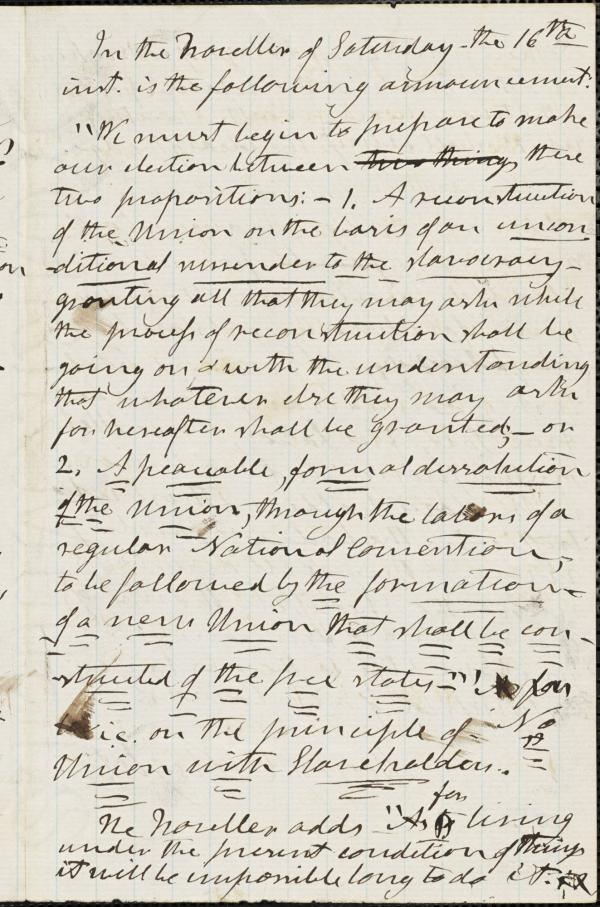 In the Traveller of Saturday - the 16th
inst. is the following announcement:
"We must begin to prepare to make
our election between two things these
two propositions: - 1. A reconstruction
of the Union on the basis of an uncon
-ditional surrender to the slavocracy -
granting all that they may ask while
the process of reconstruction shall be
going on & with the understanding
that whatever else they may ask
for hereafter shall be granted; - or
2. A peaceable, formal dissolution
of the Union, through the labors of a
regular National Convention,
to be followed by the formation -
of a new Union that shall be con-
structed of the free states -"!
i.e. on the principle of - No
Union with Slaveholders.
The Traveller adds "As for living
under the present condition of things
it will be impossible long to do it.